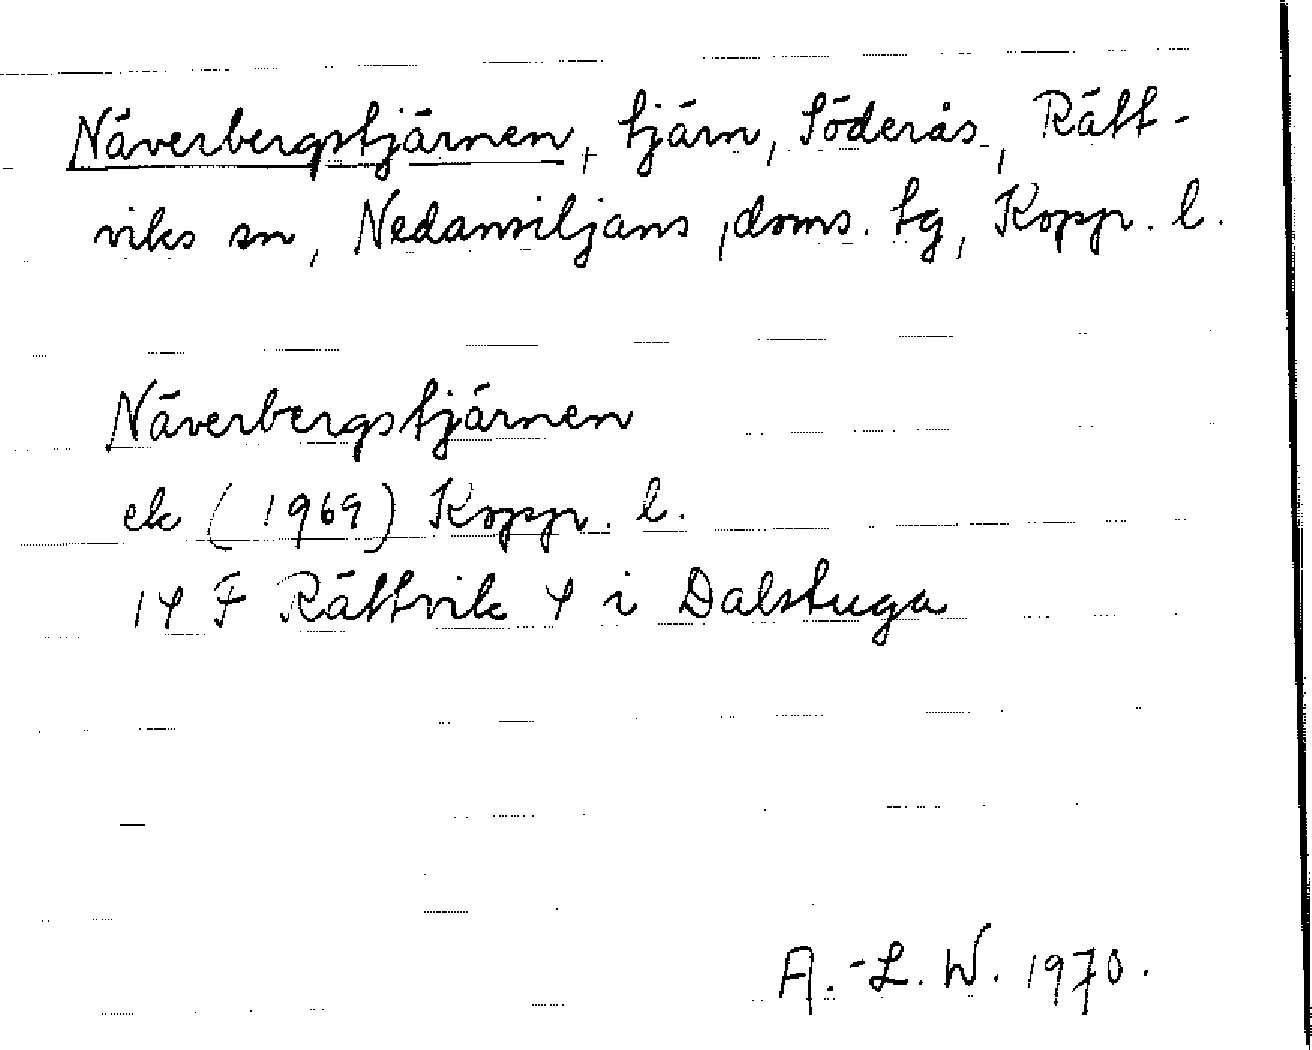 Näverbergstjärnen, tjärn, Söderås, Rätt-
viks sn, Nedansiljans doms. tg, Kopp. l.
Näverbergstjärnen
ek (1969) Kopp. l.
14 F Rättvik 4 i Dalstuga
A.-L. W. 1970.